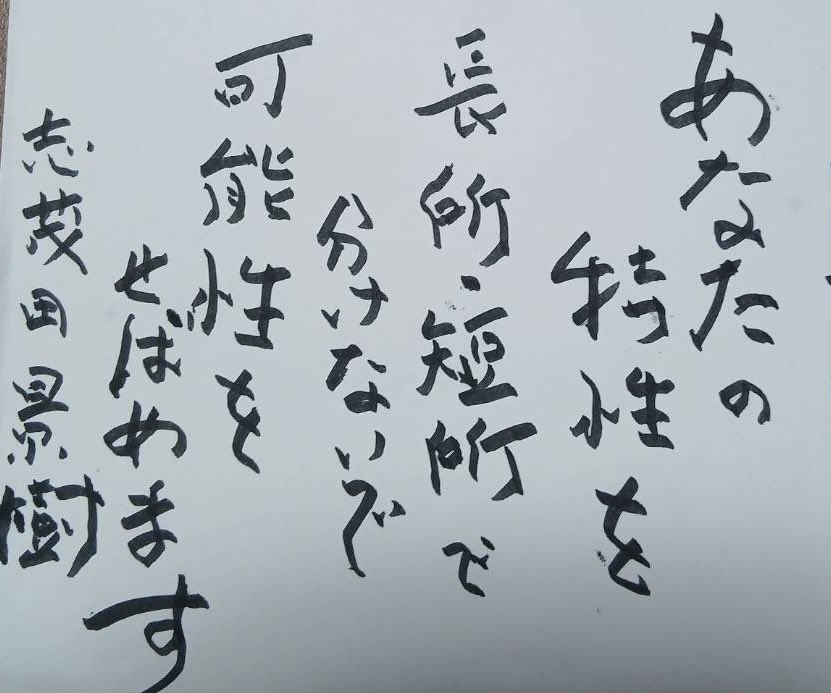 あなたの
特性を
長所・短所で
分けないで
可能性を
せばめます
志茂田景樹